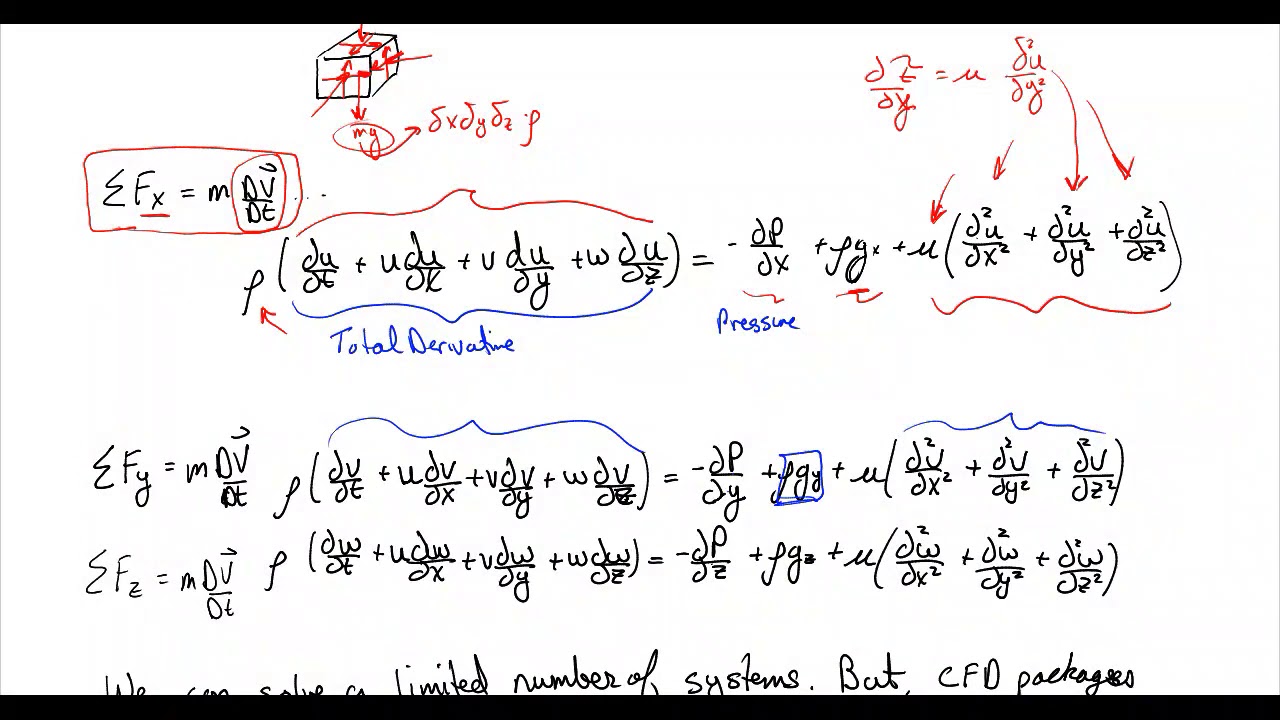 mg → δxδyδz·ρ
∂τ/∂y = μ ∂²u/∂y²
ΣFx = m DV⃗/Dt ...
ρ(∂u/∂t + u ∂u/∂x + v ∂u/∂y + w ∂u/∂z) = -∂P/∂x + ρgx + μ(∂²u/∂x² + ∂²u/∂y² + ∂²u/∂z²)
Total Derivative
Pressure
ΣFy = m DV⃗/Dt ρ(∂v/∂t + u ∂v/∂x + v ∂v/∂y + w ∂v/∂z) = -∂P/∂y + ρgy + μ(∂²v/∂x² + ∂²v/∂y² + ∂²v/∂z²)
ΣFz = m DV⃗/Dt ρ(∂w/∂t + u ∂w/∂x + v ∂w/∂y + w ∂w/∂z) = -∂P/∂z + ρgz + μ(∂²w/∂x² + ∂²w/∂y² + ∂²w/∂z²)
We can solve a limited number of systems. But, CFD packages